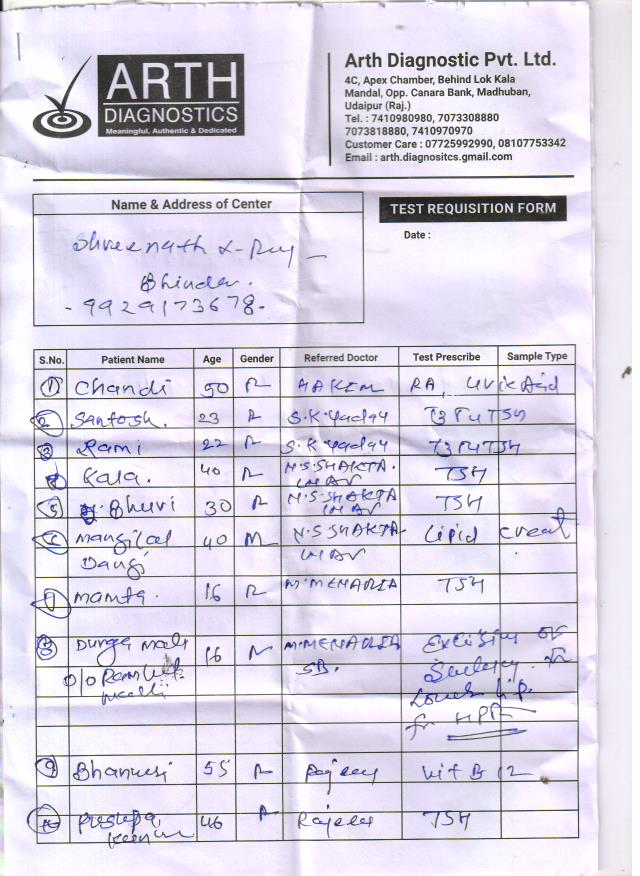 ARTH
DIAGNOSTICS
Meaningful, Authentic & Dedicated
Arth Diagnostic Pvt. Ltd.
4C, Apex Chamber, Behind Lok Kala
Mandal, Opp. Canara Bank, Madhuban,
Udaipur (Raj.)
Tel. : 7410980980, 7073308880
7073818880, 7410970970
Customer Care : 07725992990, 08107753342
Email : arth.diagnositcs.gmail.com
Name & Address of Center
TEST REQUISITION FORM
Date :
Shreenath X-Ray
Bhinder
- 9929173678 -
S.No. Patient Name Age Gender Referred Doctor Test Prescribe Sample Type
1 Chandi 50 F HAKEM RA, Uric Acid
2 Santosh. 23 F S.K. Yadav T3 T4 TSH
3 Rami 22 F S.K. Yadav T3 T4 TSH
4 Kala. 40 F N.S. SHAKTA TSH
WAV
5 Bhuri 30 F N.S. SHAKTA TSH
WAV
6 Mangilal 40 M N.S SHAKTA Lipid creat
WAV
Dangi
7 Mamta. 16 F M. MENARIA TSH
8 Durga Mali 16 M. MENARIA Excision of
SB.
D/o
Lower Lip.
for HPE
9 55 F Rajeev Vit B 12
10 46 F Rajeev TSH